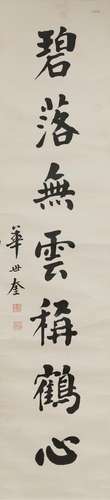 碧落無雲稱鶴心
華世奎